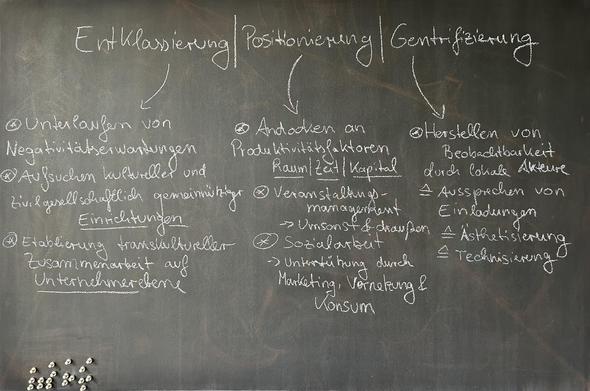 EntKlassierung | Positionierung | Gentrifizierung
⊛ Unterlaufen von
Negativitätserwartungen
⊛ Aufsuchen kultureller und
zivilgesellschaftlich gemeinnütziger
Einrichtungen
⊛ Etablierung transkultureller
Zusammenarbeit auf
Unternehmerebene
⊛ Andocken an
Produktivitätsfaktoren
Raum | Zeit | Kapital
⊛ Veranstaltungs-
management
→ Umsonst & draußen
⊛ Sozialarbeit
→ Unterstützung durch
Marketing, Vernetzung &
Konsum
⊛ Herstellen von
Beobachtbarkeit
durch lokale Akteure
≙ Aussprechen von
Einladungen
≙ Ästhetisierung
≙ Technisierung